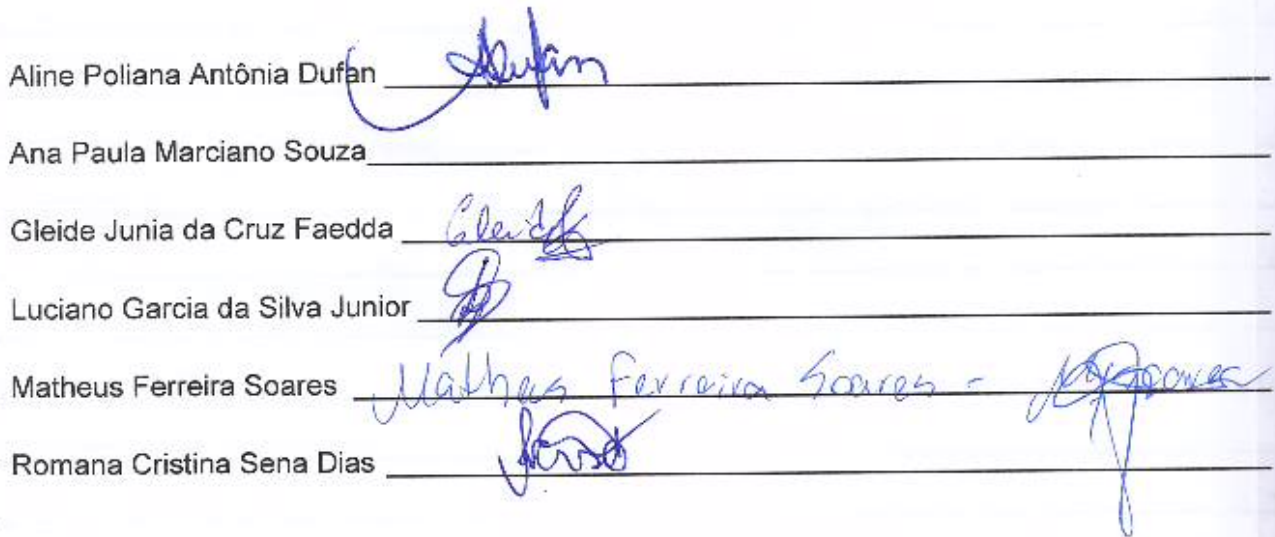 Aline Poliana Antônia Dufan Dufan
Ana Paula Marciano Souza
Gleide Junia da Cruz Faedda
Luciano Garcia da Silva Junior
Matheus Ferreira Soares Matheus Ferreira Soares -
Romana Cristina Sena Dias